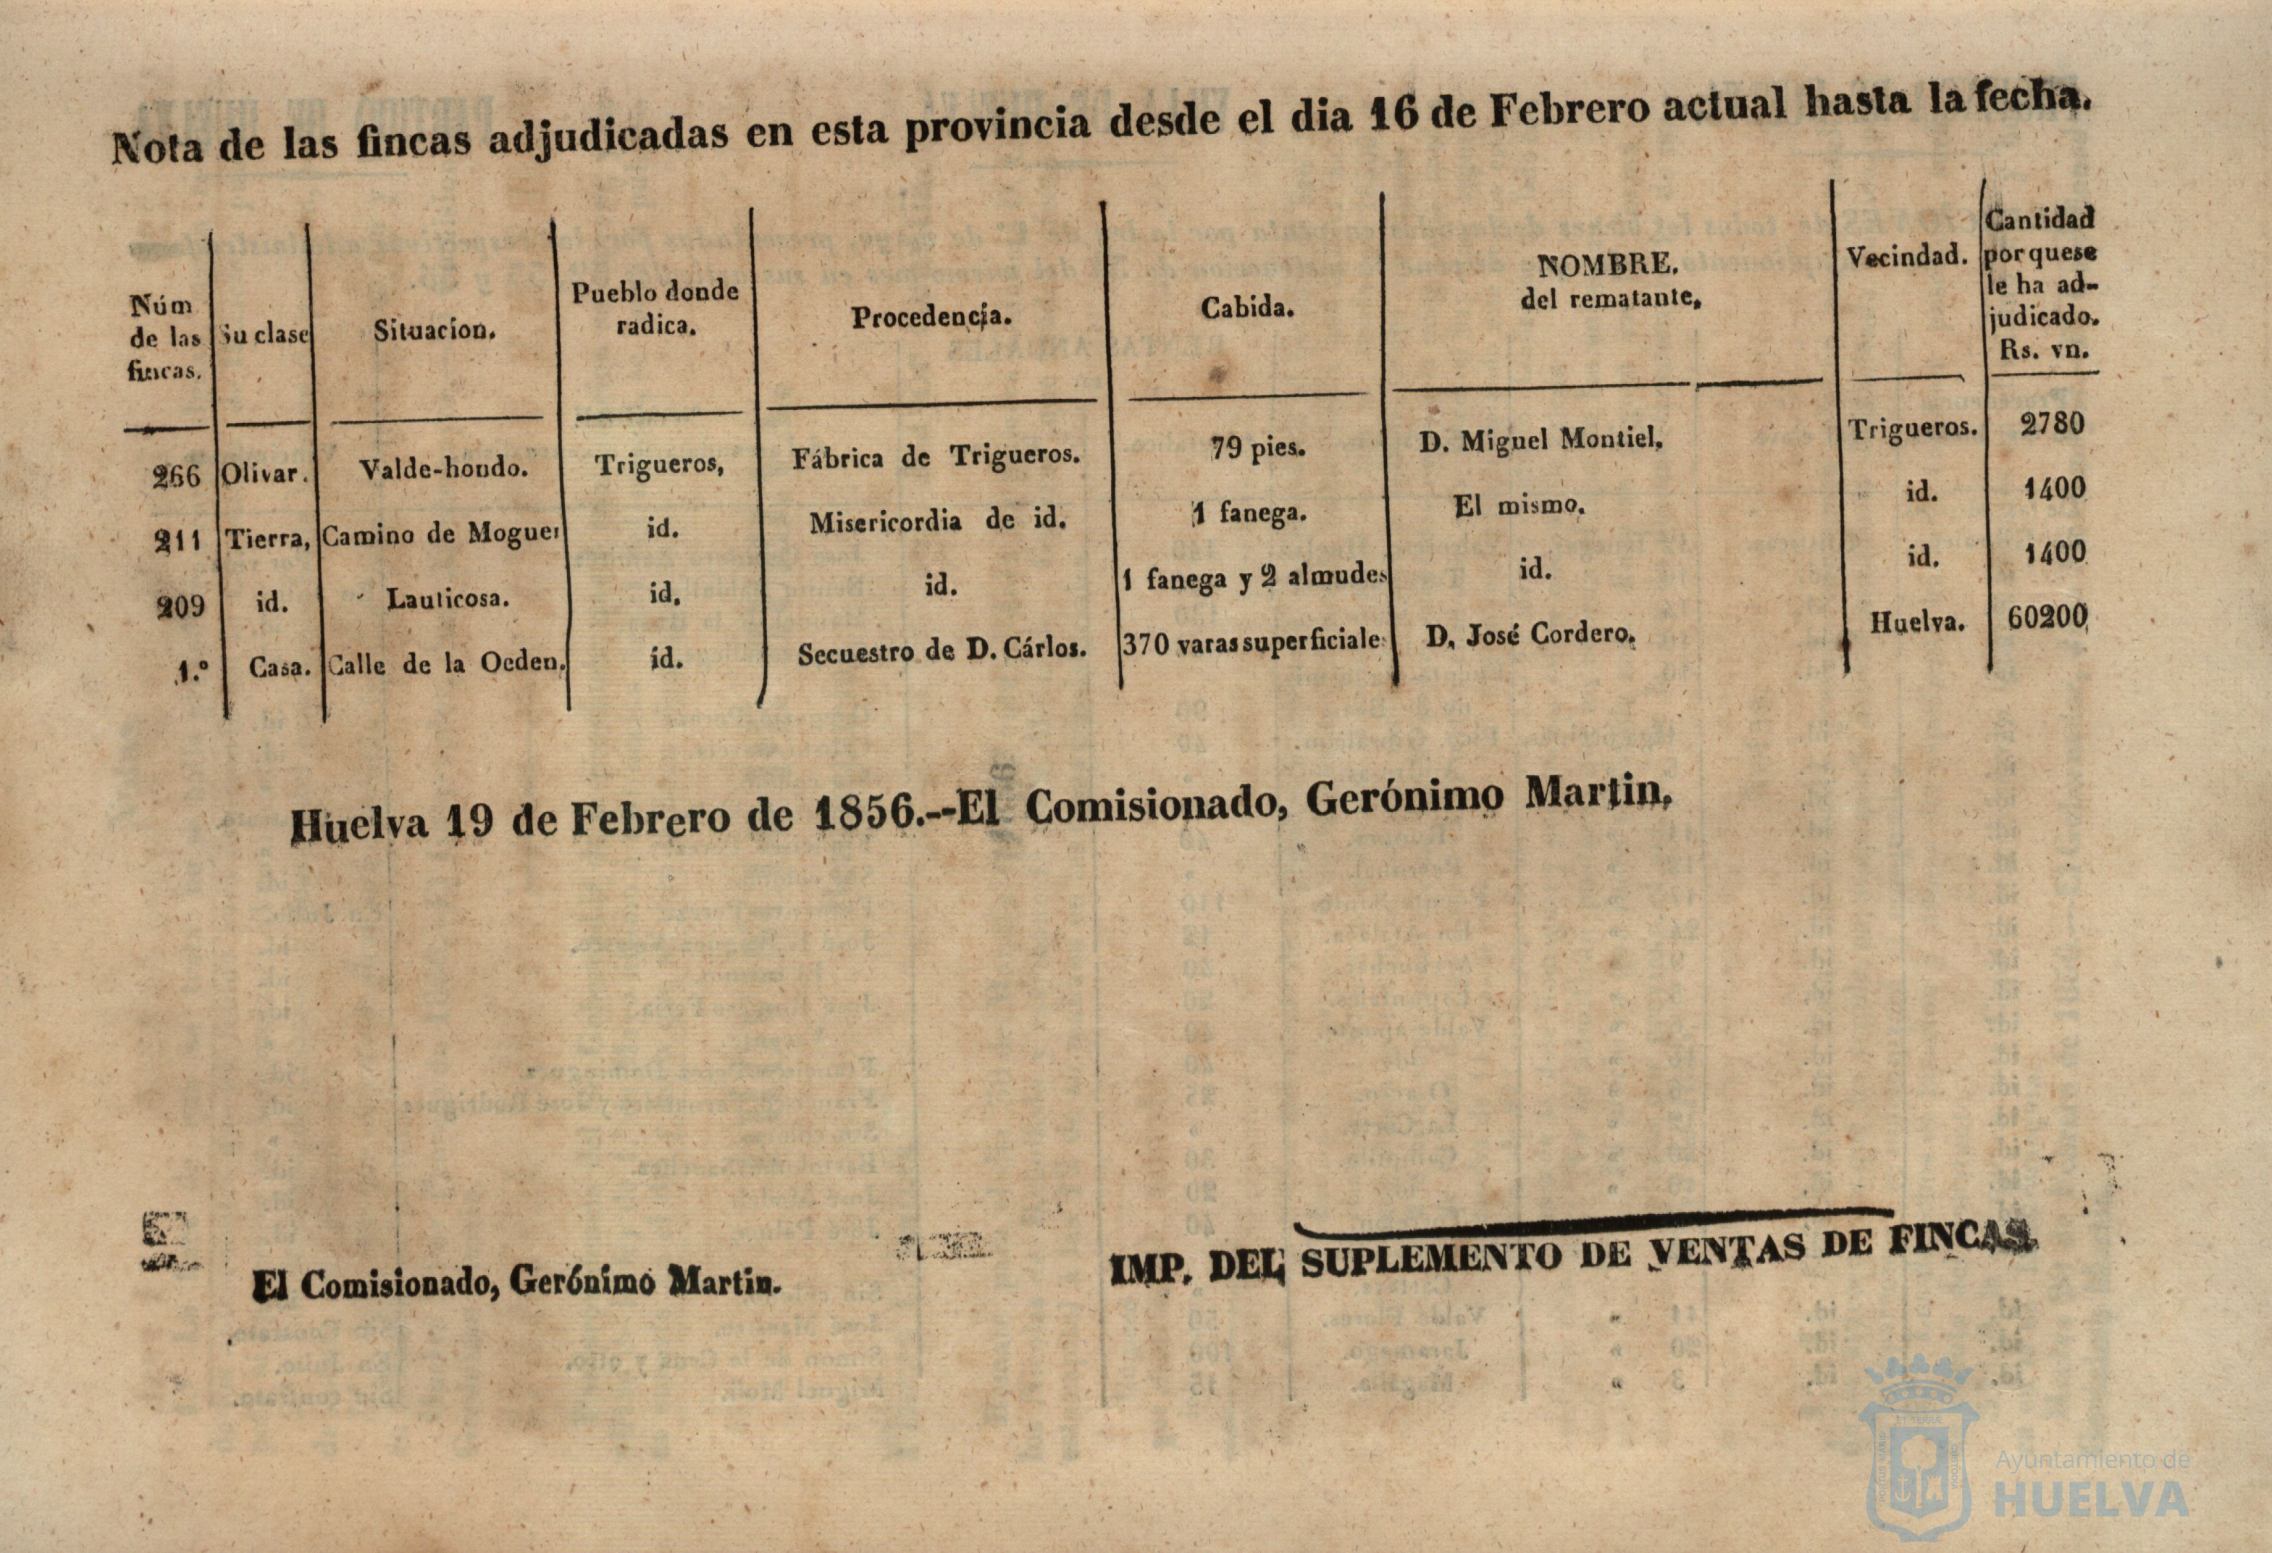 Nota de las fincas adjudicadas en esta provincia desde el dia 16 de Febrero actual hasta la fecha.
Núm de las fincas. | Su clase | Situacion. | Pueblo donde radica. | Procedencia. | Cabida. | NOMBRE. del rematante, | Vecindad. | Cantidad por que se le ha ad- judicado. Rs. vn.
266 | Olivar. | Valde-hondo. | Trigueros, | Fábrica de Trigueros. | 79 pies. | D. Miguel Montiel, | Trigueros. | 2780
211 | Tierra, | Camino de Moguer | id. | Misericordia de id. | 1 fanega. | El mismo. | id. | 1400
209 | id. | Lauticosa. | id. | id. | 1 fanega y 2 almudes | id. | id. | 1400
1.º | Casa. | Calle de la Ocden. | id. | Secuestro de D. Cárlos. | 370 varas superficiale | D. José Cordero. | Huelva. | 60200
Huelva 19 de Febrero de 1856.--El Comisionado, Gerónimo Martin.
El Comisionado, Gerónimo Martin.
IMP. DEL SUPLEMENTO DE VENTAS DE FINCAS.
Ayuntamiento de
HUELVA